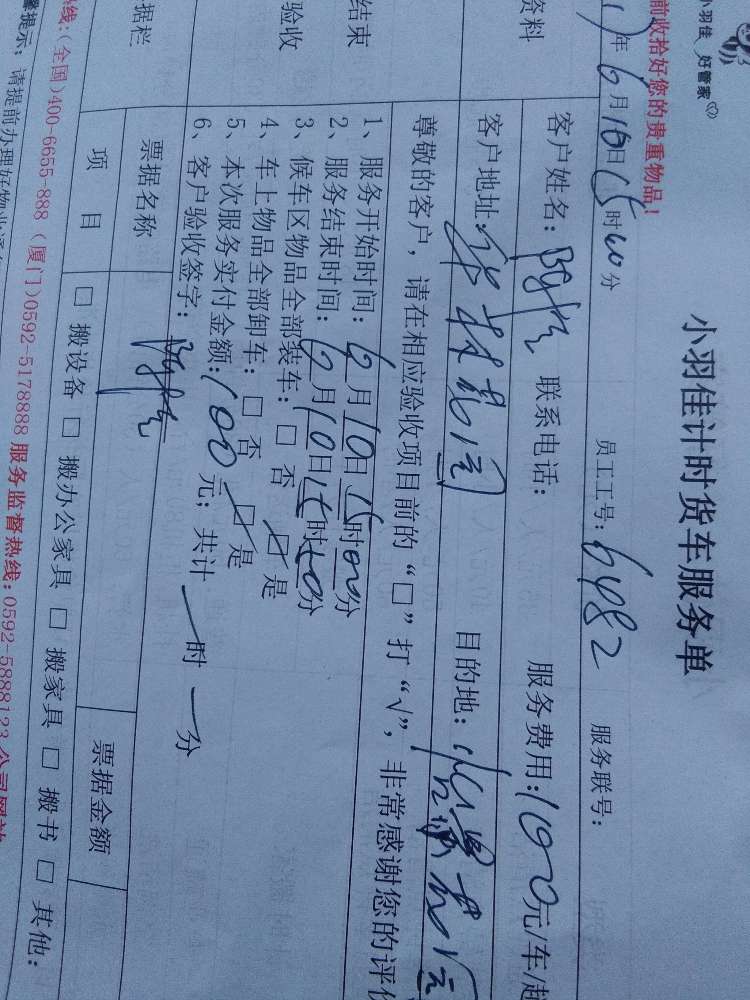 小羽佳 好管家
前收拾好您的贵重物品！
小羽佳计时货车服务单
年6月10日15时00分 员工工号：6482 服务联号：
资料
客户姓名： 联系电话： 服务费用：100元/车/趟
客户地址： 目的地：
尊敬的客户，请在相应验收项目前的“□”打“√”，非常感谢您的评价
结束
验收
1、服务开始时间：6月10日15时00分
2、服务结束时间：6月10日15时40分
3、候车区物品全部装车：□否 ☑是
4、车上物品全部卸车：□否 ☑是
5、本次服务实付金额：100元；共计一时一分
6、客户验收签字：
据栏
票据名称 票据金额
项目 □搬设备 □搬办公家具 □搬家具 □搬书 □其他：
热线：(全国)400-6655-888 (厦门)0592-5178888 服务监督热线：0592-5888123 公司网站
馨提示：请提前办理好物业